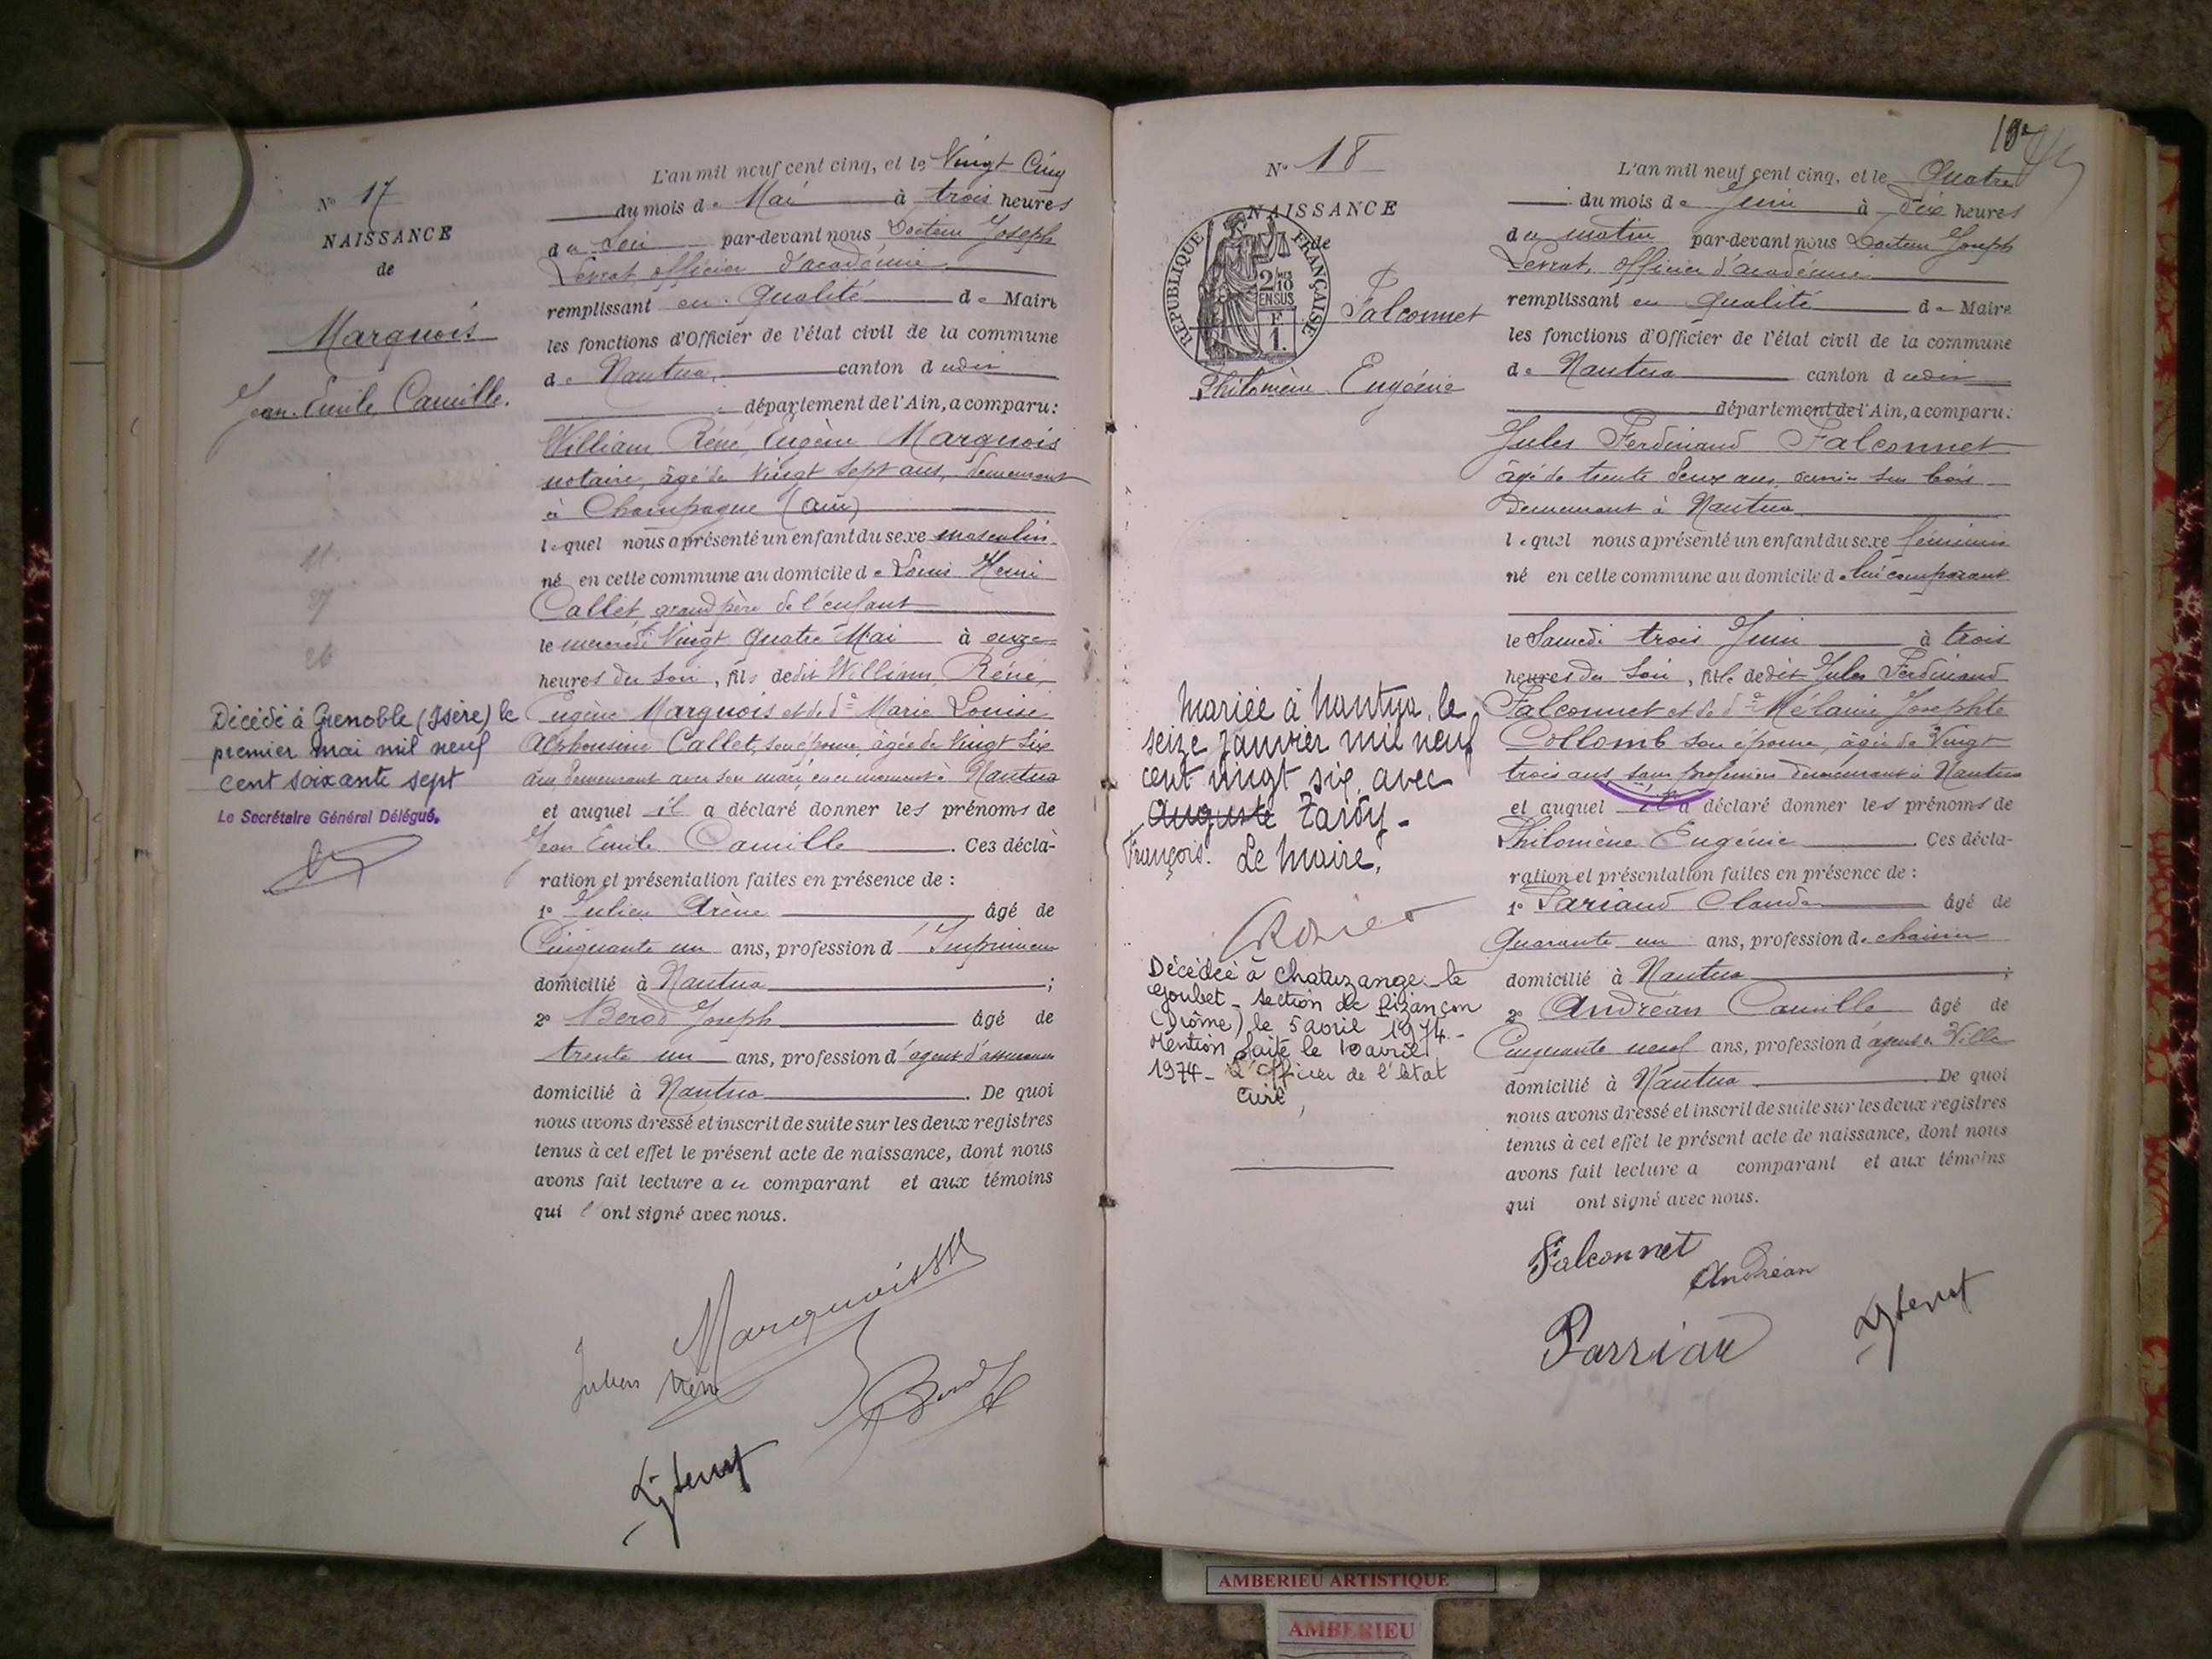 N° 17
NAISSANCE
de
Marquois
Jean Emile Camille.
Décédé à Grenoble (Isère) le
premier mai mil neuf
cent soixante sept
Le Secrétaire Général Délégué.
L'an mil neuf cent cinq, et le Vingt Cinq
du mois de Mai à trois heures
du Soir par-devant nous Docteur Joseph
Levrat, officier d'académie
remplissant en qualité de Maire
les fonctions d'Officier de l'état civil de la commune
de Nantua, canton dudit
département de l'Ain, a comparu:
William Réné Eugène Marquois
notaire, âgé de Vingt sept ans, demeurant
à Champagne (Ain)
lequel nous a présenté un enfant du sexe masculin
né en cette commune au domicile de Louis Henri
Callet, grand père de l'enfant
le mercredi Vingt quatre Mai à onze
heures du soir, fils dedit William, Réné,
Eugène Marquois et de de Marie Louise
Alphonsine Callet, son épouse, âgée de Vingt Six
ans demeurant avec son mari, en ce moment à Nantua
et auquel il a déclaré donner les prénoms de
Jean Emile Camille. Ces décla-
ration et présentation faites en présence de :
1° Julien Arène âgé de
Cinquante un ans, profession d'Imprimeur
domicilié à Nantua ;
2° Berod Joseph âgé de
trente un ans, profession d'agent d'assurances
domicilié à Nantua. De quoi
nous avons dressé et inscrit de suite sur les deux registres
tenus à cet effet le présent acte de naissance, dont nous
avons fait lecture au comparant et aux témoins
qui l'ont signé avec nous.
Marquois
Julien Arène
Berod J
N° 18
NAISSANCE
de
RÉPUBLIQUE FRANÇAISE
2/10
EN SUS
F.
1.
Falconnet
Philomène Eugénie
Mariée à Nantua, le
seize janvier mil neuf
cent vingt six, avec
Auguste Tardy -
François. Le Maire,
Décédée à Chatuzange-le
Goubet - section de Pizançon
(Drôme) le 5 avril 1974. -
Mention faite le 10 avril
1974 - L'Officier de l'état
Civil,
L'an mil neuf cent cinq, et le Quatre
du mois de Juin à Dix heures
du matin par-devant nous Docteur Joseph
Levrat, officier d'académie
remplissant en qualité de Maire
les fonctions d'Officier de l'état civil de la commune
de Nantua canton dudit
département de l'Ain, a comparu:
Jules Ferdinand Falconnet
âgé de trente deux ans, ouvrier sur bois
demeurant à Nantua
lequel nous a présenté un enfant du sexe féminin
né en cette commune au domicile de lui comparant
le Samedi trois Juin à trois
heures du Soir, fille dedit Jules Ferdinand
Falconnet et de de Mélanie Josephte
Collomb son épouse, âgée de Vingt
trois ans sans profession demeurant à Nantua
et auquel il a déclaré donner les prénoms de
Philomène Eugénie. Ces décla-
ration et présentation faites en présence de :
1° Pariaud Claude âgé de
Quarante un ans, profession de chaisier
domicilié à Nantua ;
2° Andréan Camille âgé de
Cinquante neuf ans, profession d'agent de Ville
domicilié à Nantua. De quoi
nous avons dressé et inscrit de suite sur les deux registres
tenus à cet effet le présent acte de naissance, dont nous
avons fait lecture a comparant et aux témoins
qui ont signé avec nous.
Falconnet
Andréan
Parriau
AMBERIEU ARTISTIQUE
AMBERIEU